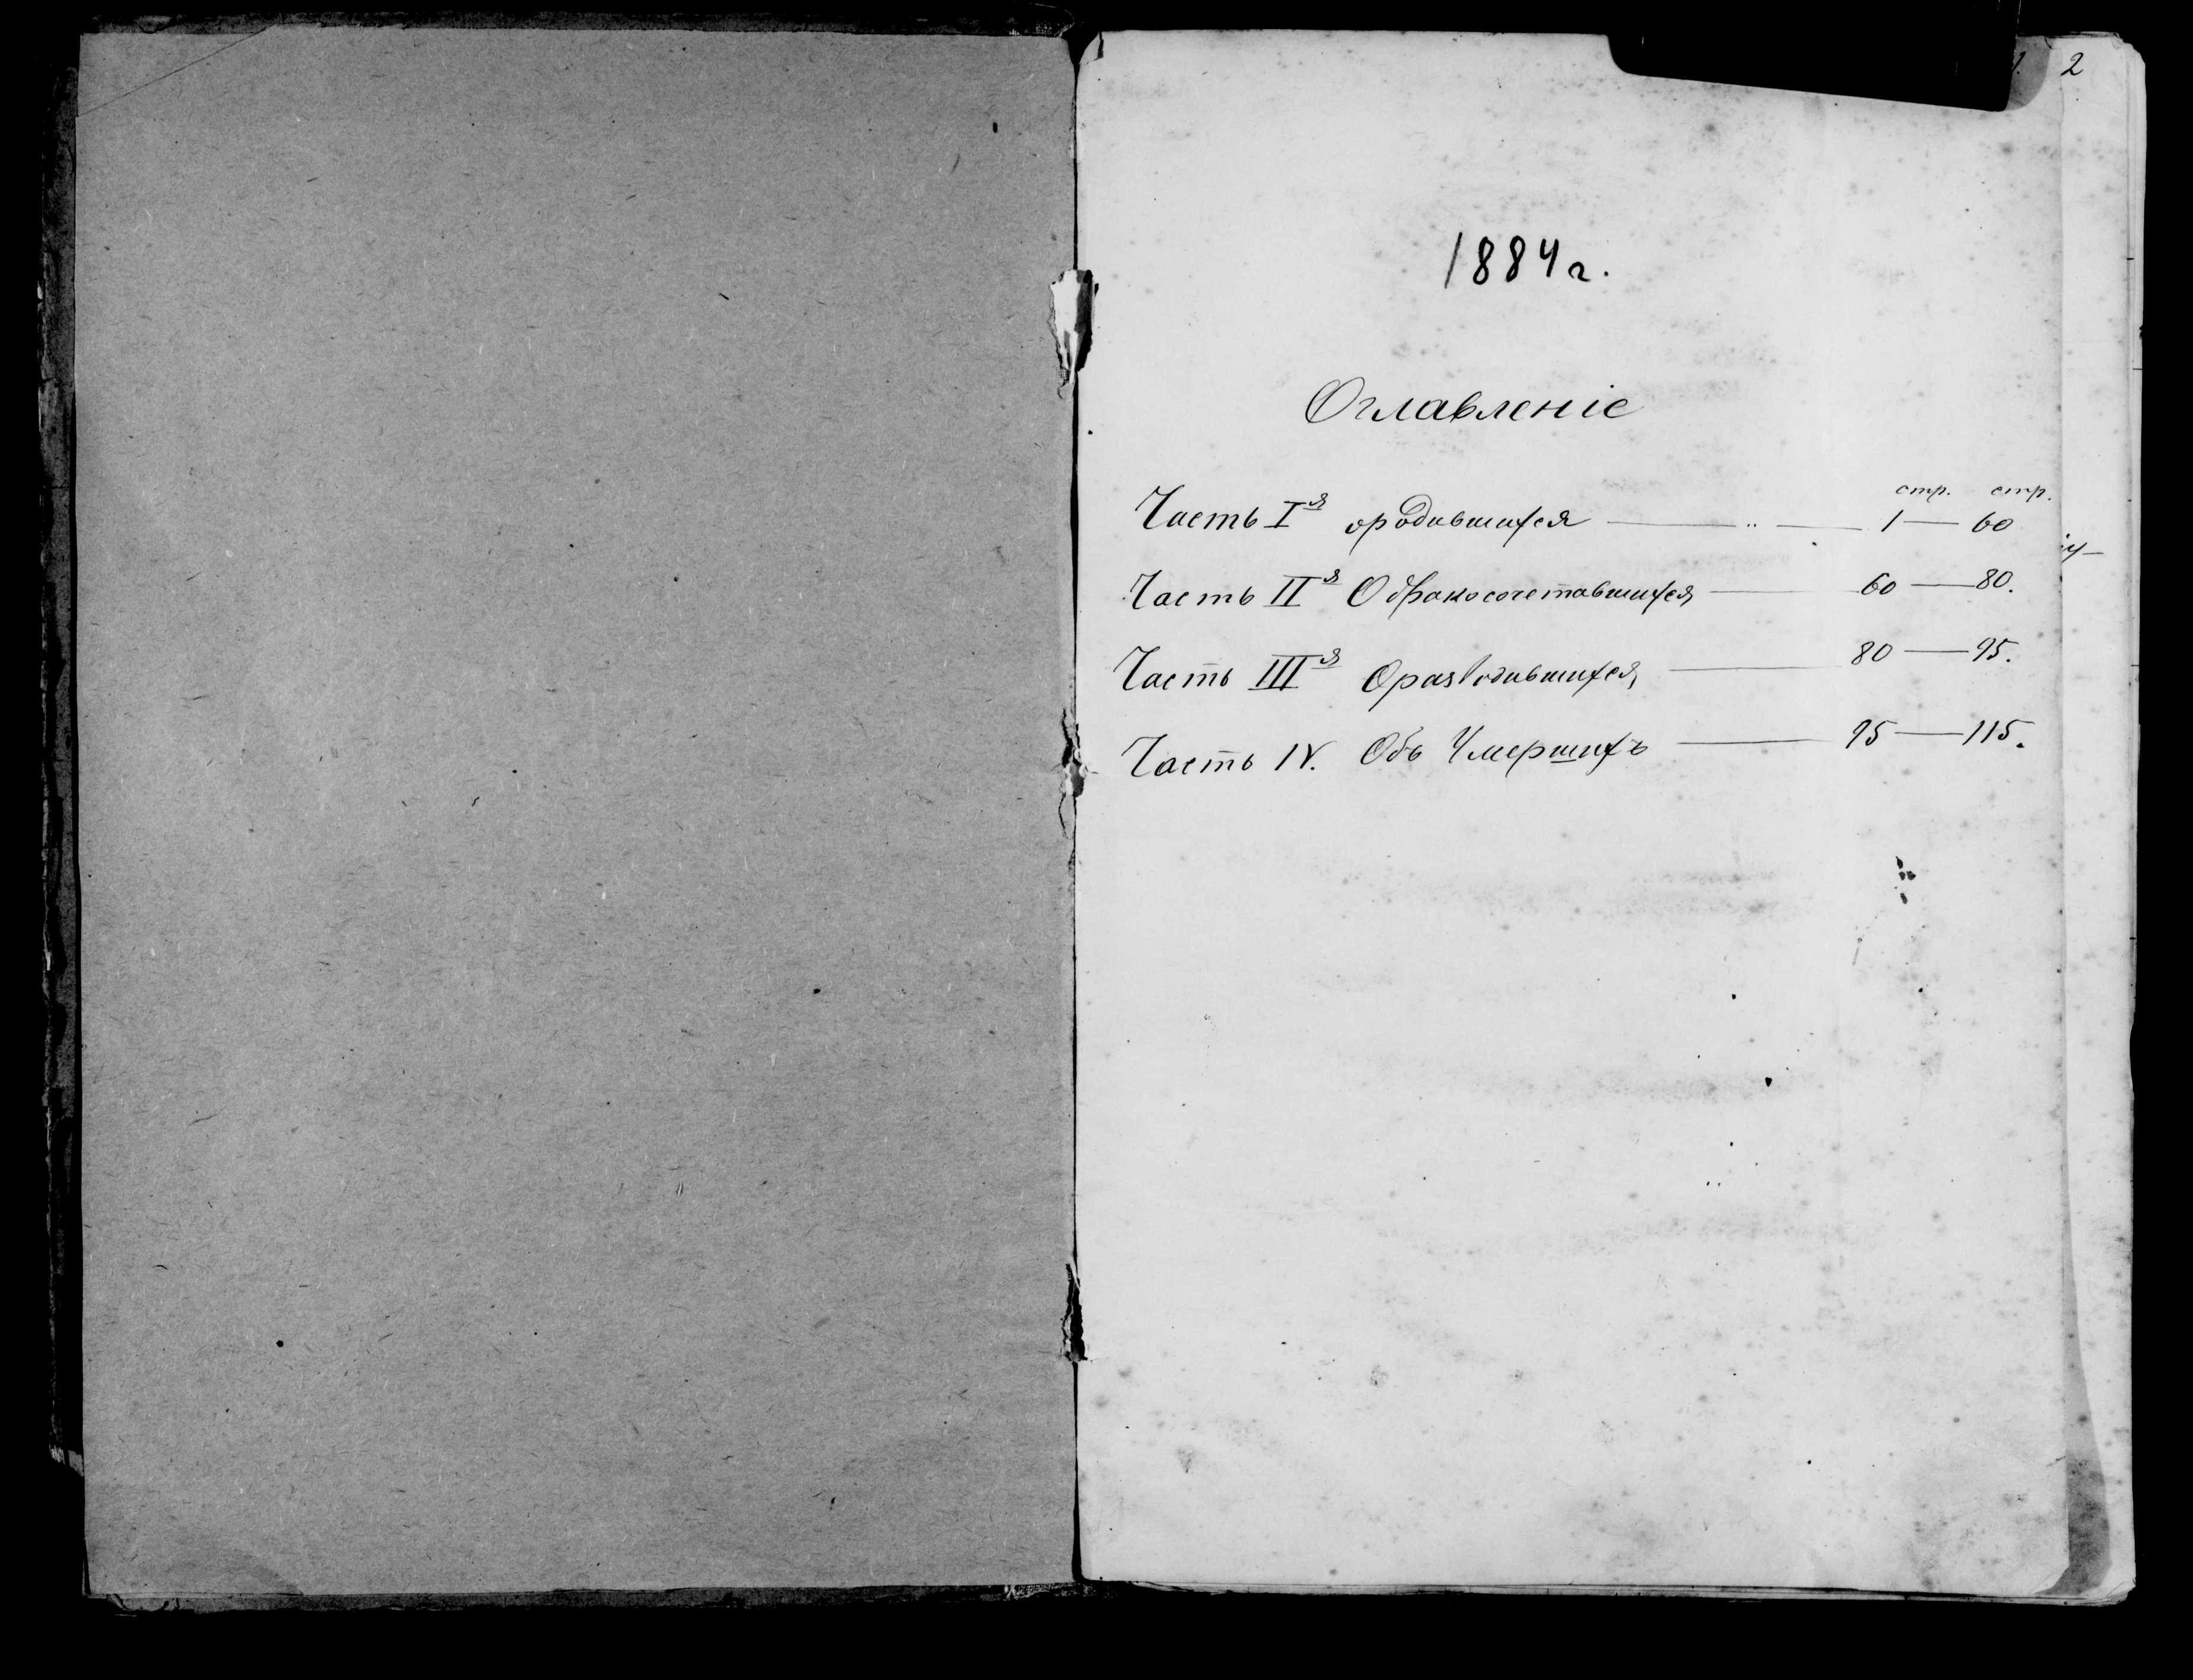 2
1884 г.
Оглавленіе
стр. стр.
Часть I я о родившихся — 1 — 60
Часть II я О бракосочетавшихся — 60 — 80.
Часть III я О разводившихся, — 80 — 95.
Часть IV. Объ Умершихъ — 95 — 115.